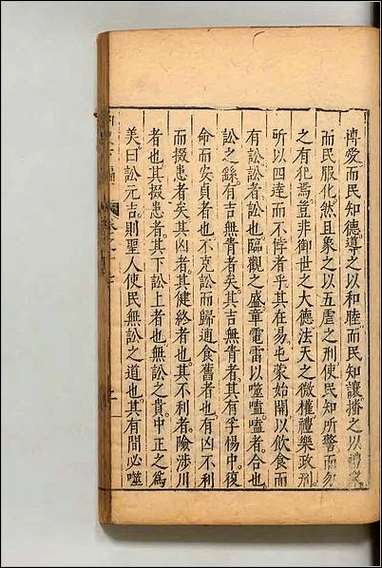 博愛而民知德導之以和睦而民知讓播之以禮樂
而民服化然且象之以五虐之刑使民知所警而勿
之有犯焉豈非御世之大德法天之微權禮樂政刑
所以四達而不悖者乎其在易屯蒙始開以飲食而
有訟訟者訟也臨觀之盛章電雷以噬嗑嗑者合也
訟之繇有吉無眚者矣其吉無眚者其有孚惕中復
命而安貞者也不克訟而歸逋食舊者也有凶不利
而掇患者矣其凶者其健終者也其不利者險涉川
者也其掇患者其下訟上者也無訟之貴中正之為
美曰訟元吉則聖人使民無訟之道也其有間必噬